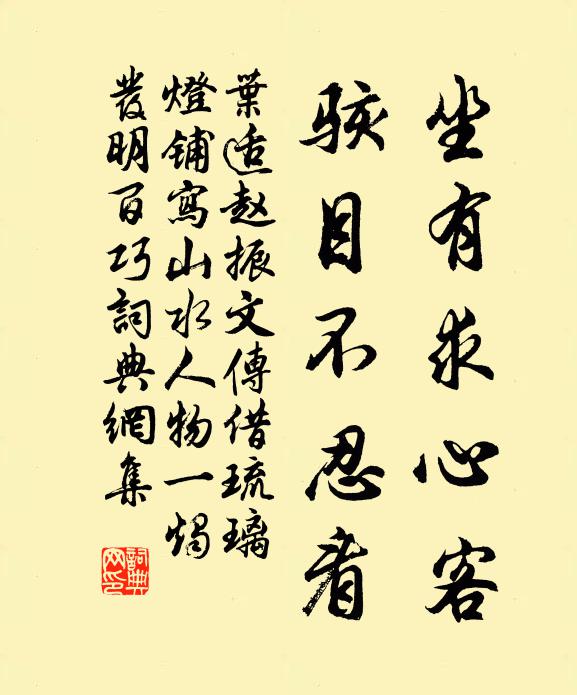 坐有求心客
駭目不忍看
葉适赵振文傳借琉璃
燈铺寫山水人物一燭
發明百巧詞典網集
詞典网印